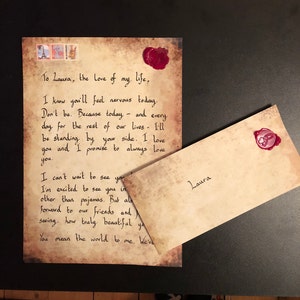 To Laura, the love of my life,
I know you'll feel nervous today.
Don't be. Because today - and every
day for the rest of our lives - I'll
be standing by your side. I love
you and I promise to always love
you.
I can't wait to see
I'm excited to see you in
other than pajamas. But
forward to our friends and
seeing how truly beautiful
You mean the world to me.
Laura